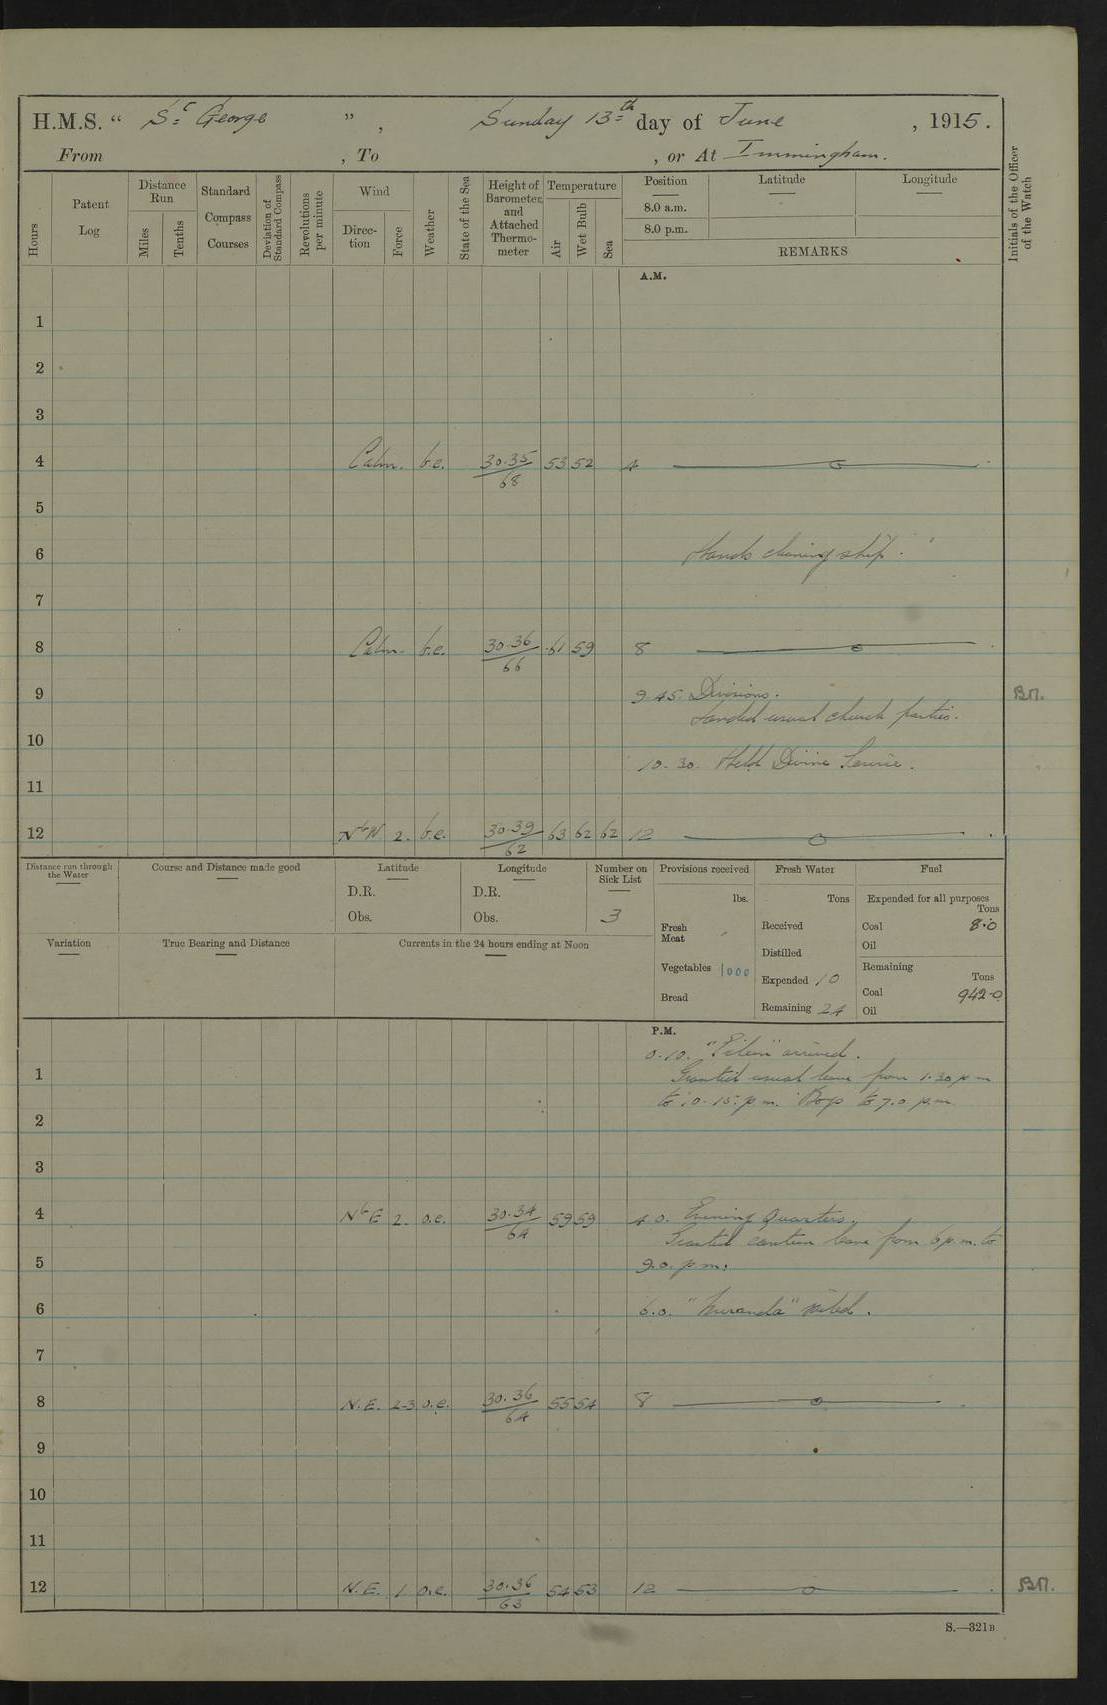 H.M.S. “ St George ” , Sunday 13th day of June , 1915.
From , To , or At Immingham.
Hours
Patent Log
Distance Run
Miles
Tenths
Standard Compass Courses
Deviation of Standard Compass
Revolutions per minute
Wind
Direction
Force
Weather
State of the Sea
Height of Barometer, and Attached Thermometer
Temperature
Air
Wet Bulb
Sea
Position
Latitude
Longitude
8.0 a.m.
8.0 p.m.
REMARKS
Initials of the Officer of the Watch
A.M.
1
2
3
4 Calm. b.c. 30.35/68 53 52 4
5
6 Hands cleaning ship.
7
8 Calm. b.c. 30.36/66 61 59 8
9 9.45. Divisions. B.M.
Landed usual church parties.
10
10.30. Held Divine Service.
11
12 NbW 2. b.c. 30.39/62 63 62 62 12
Distance run through the Water
Course and Distance made good
Latitude
D.R.
Obs.
Longitude
D.R.
Obs.
Number on Sick List
3
Variation
True Bearing and Distance
Currents in the 24 hours ending at Noon
Provisions received
lbs.
Fresh Meat
Vegetables 1000
Bread
Fresh Water
Tons
Received
Distilled
Expended 10
Remaining 24
Fuel
Expended for all purposes
Tons
Coal 8.0
Oil
Remaining
Tons
Coal 942.0
Oil
P.M.
0.10. "Eileen" arrived.
1 Granted usual leave from 1.30 p m
to 10.15. p m. Boys to 7.0 p.m
2
3
4 NbE 2. o.c. 30.34/64 59 59 4.0. Evening Quarters.
Granted canteen leave from 6 p.m. to
5 9.0. p m.
6 6.0. "Miranda" sailed.
7
8 N.E. 2-3 o.c. 30.36/64 55 54 8
9
10
11
12 N.E. 1 o.c. 30.36/63 54 53 12 B.M.
S.—321B